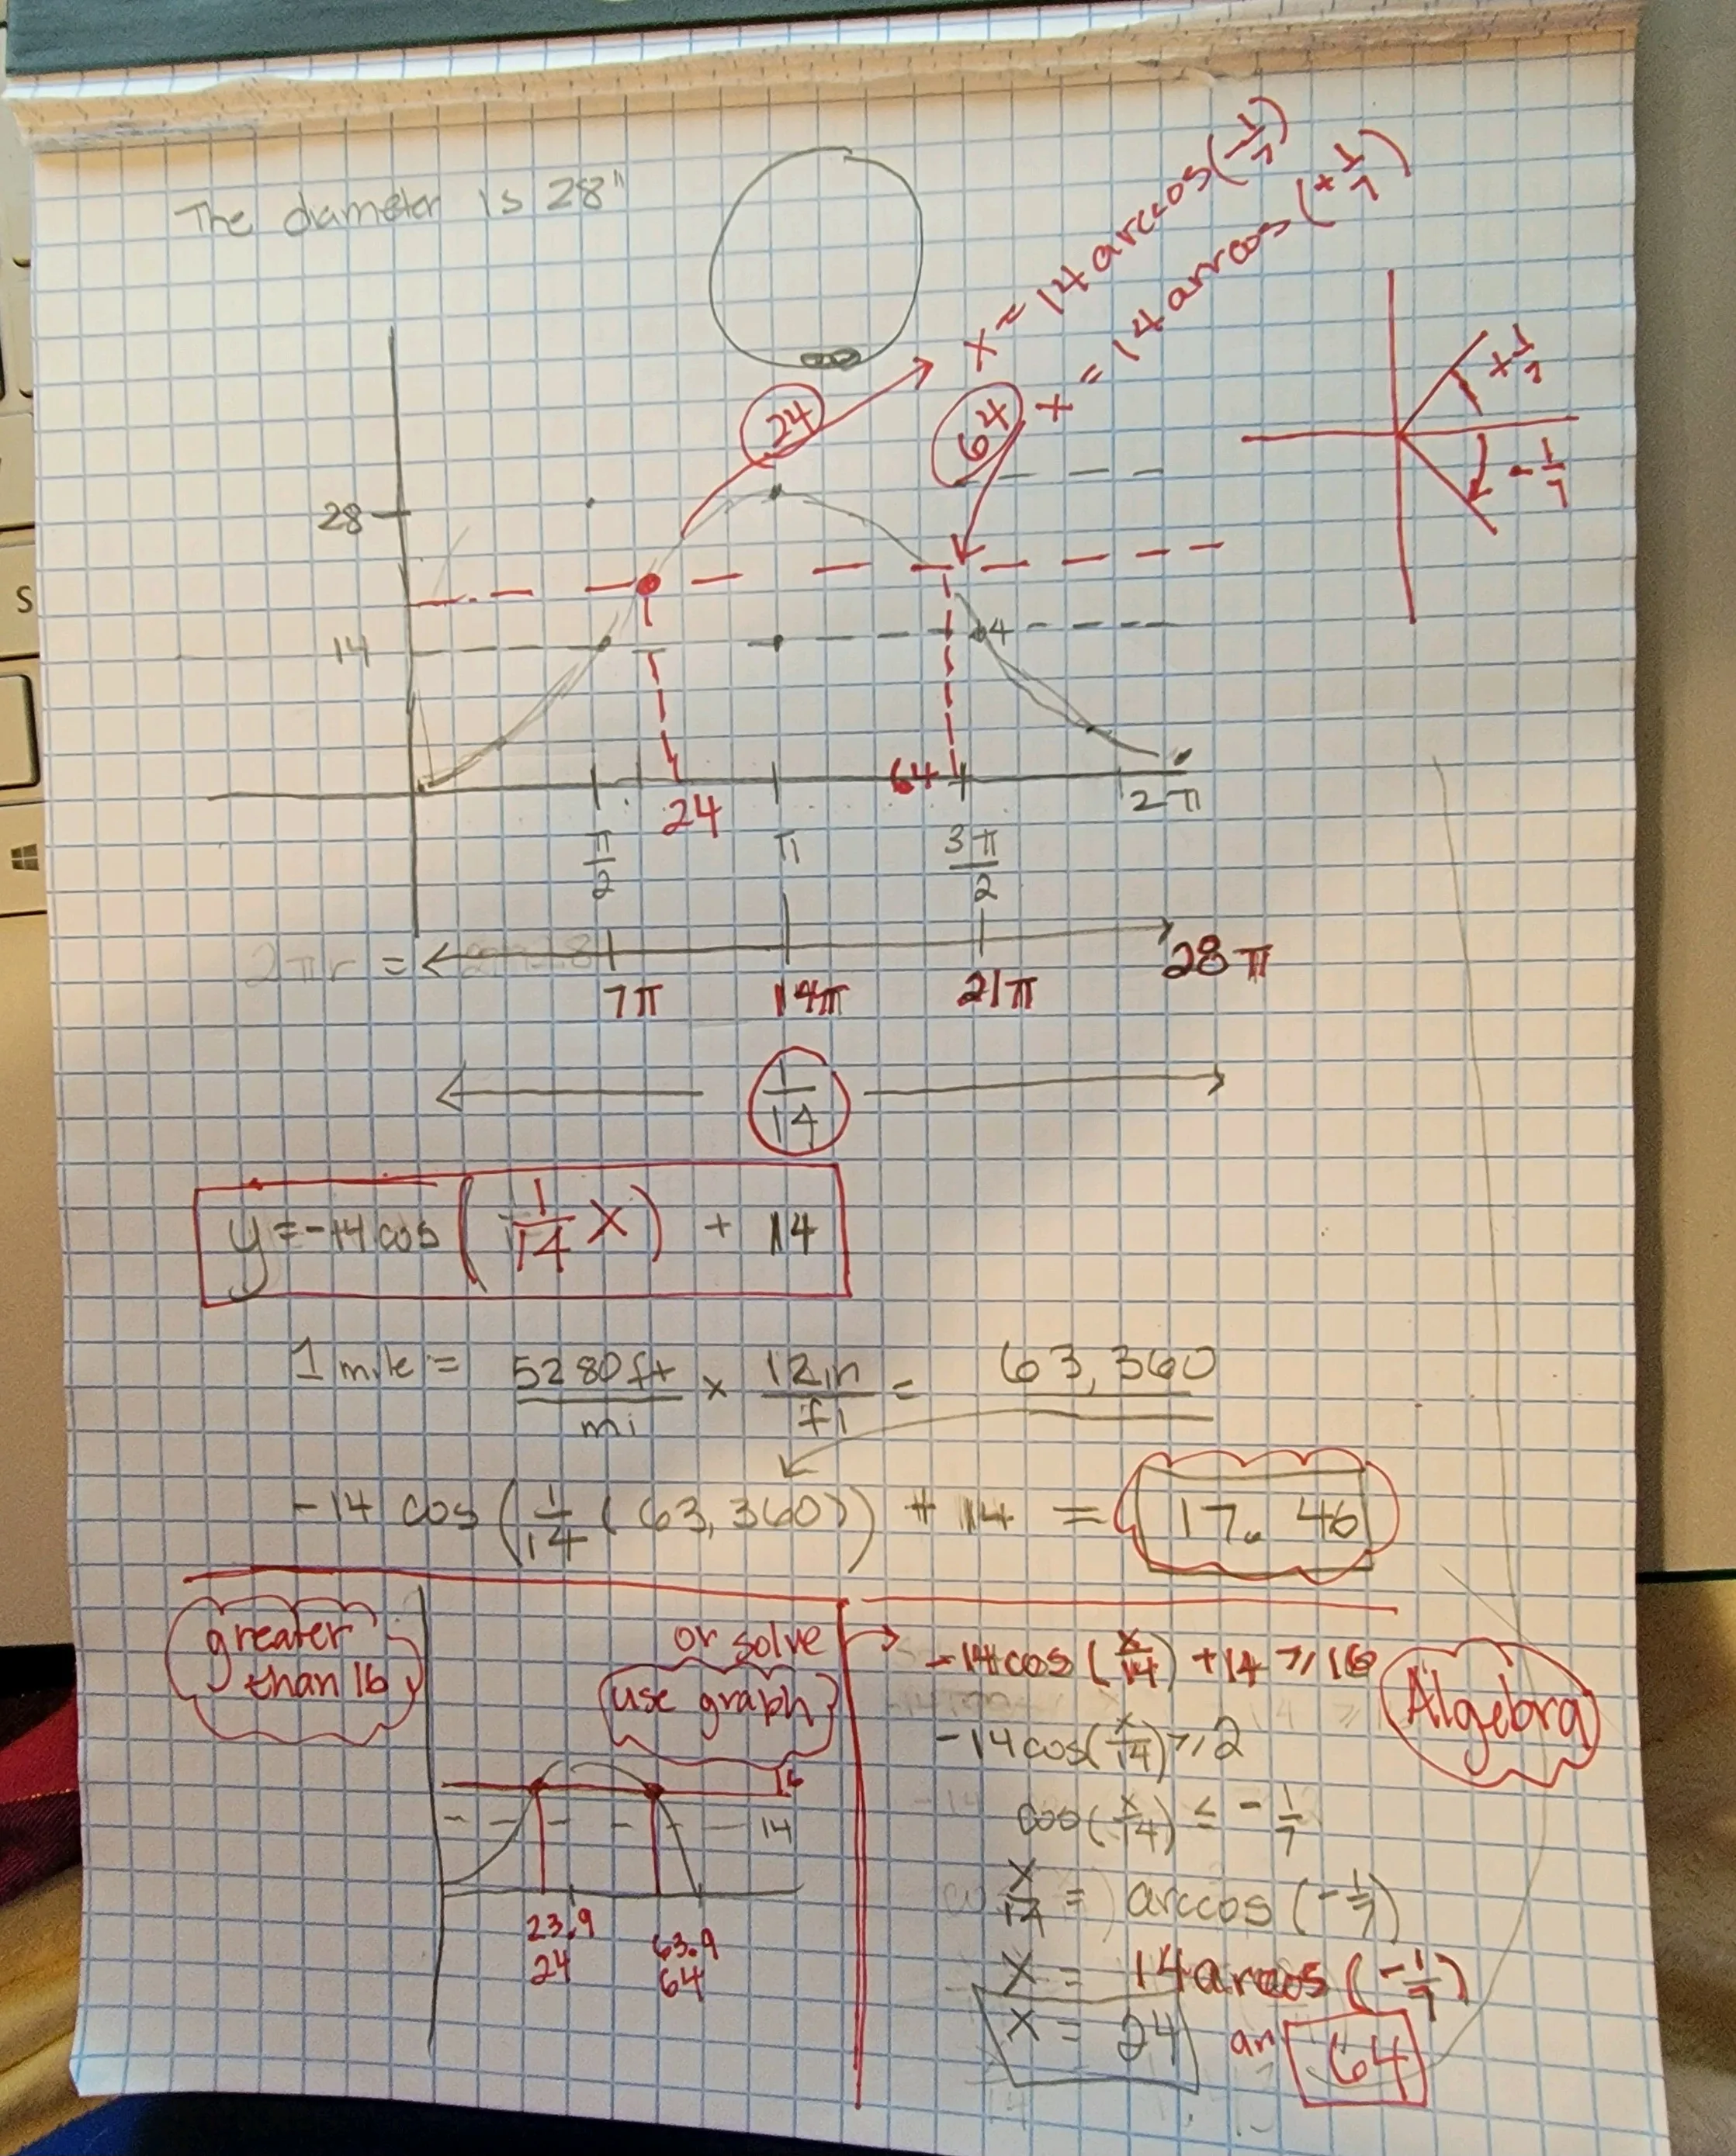 The diameter is 28"
x = 14 arccos(-1/7)
x = 14 arrcos(+1/7)
24
64
+1/7
-1/7
28
14
24
64
π/2
π
3π/2
2π
2πr =
7π
14π
21π
28π
1/14
y = -14 cos (1/14 x) + 14
1 mile = 5280ft/mi × 12in/ft = 63,360
-14 cos (1/14 (63,360)) + 14 = 17.46
greater than 16
or solve
use graph
16
14
23.9
24
63.9
64
-14cos (x/14) + 14 ≥ 16
Algebra
-14cos(x/14) ≥ 2
cos(x/14) ≤ -1/7
x/14 = arccos (-1/7)
x = 14arccos (-1/7)
x = 24
64